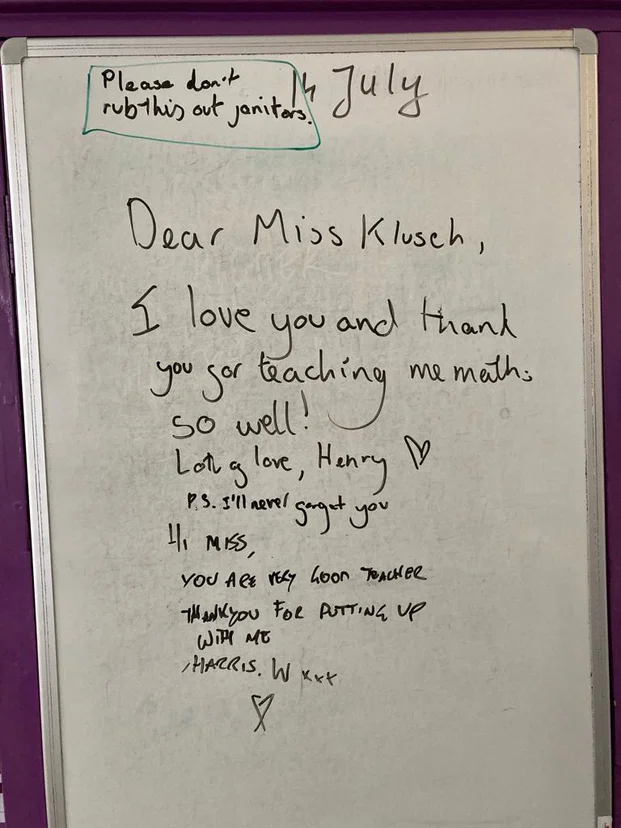 Please don't
rub this out janitors.
14 July
Dear Miss Klusch,
I love you and thank
you for teaching me maths
so well!
Lots of love, Henry ♡
P.S. I'll never forget you
Hi MISS,
YOU ARE VERY GOOD TEACHER
THANKYOU FOR PUTTING UP
WITH ME
HARRIS. W xxx
♡